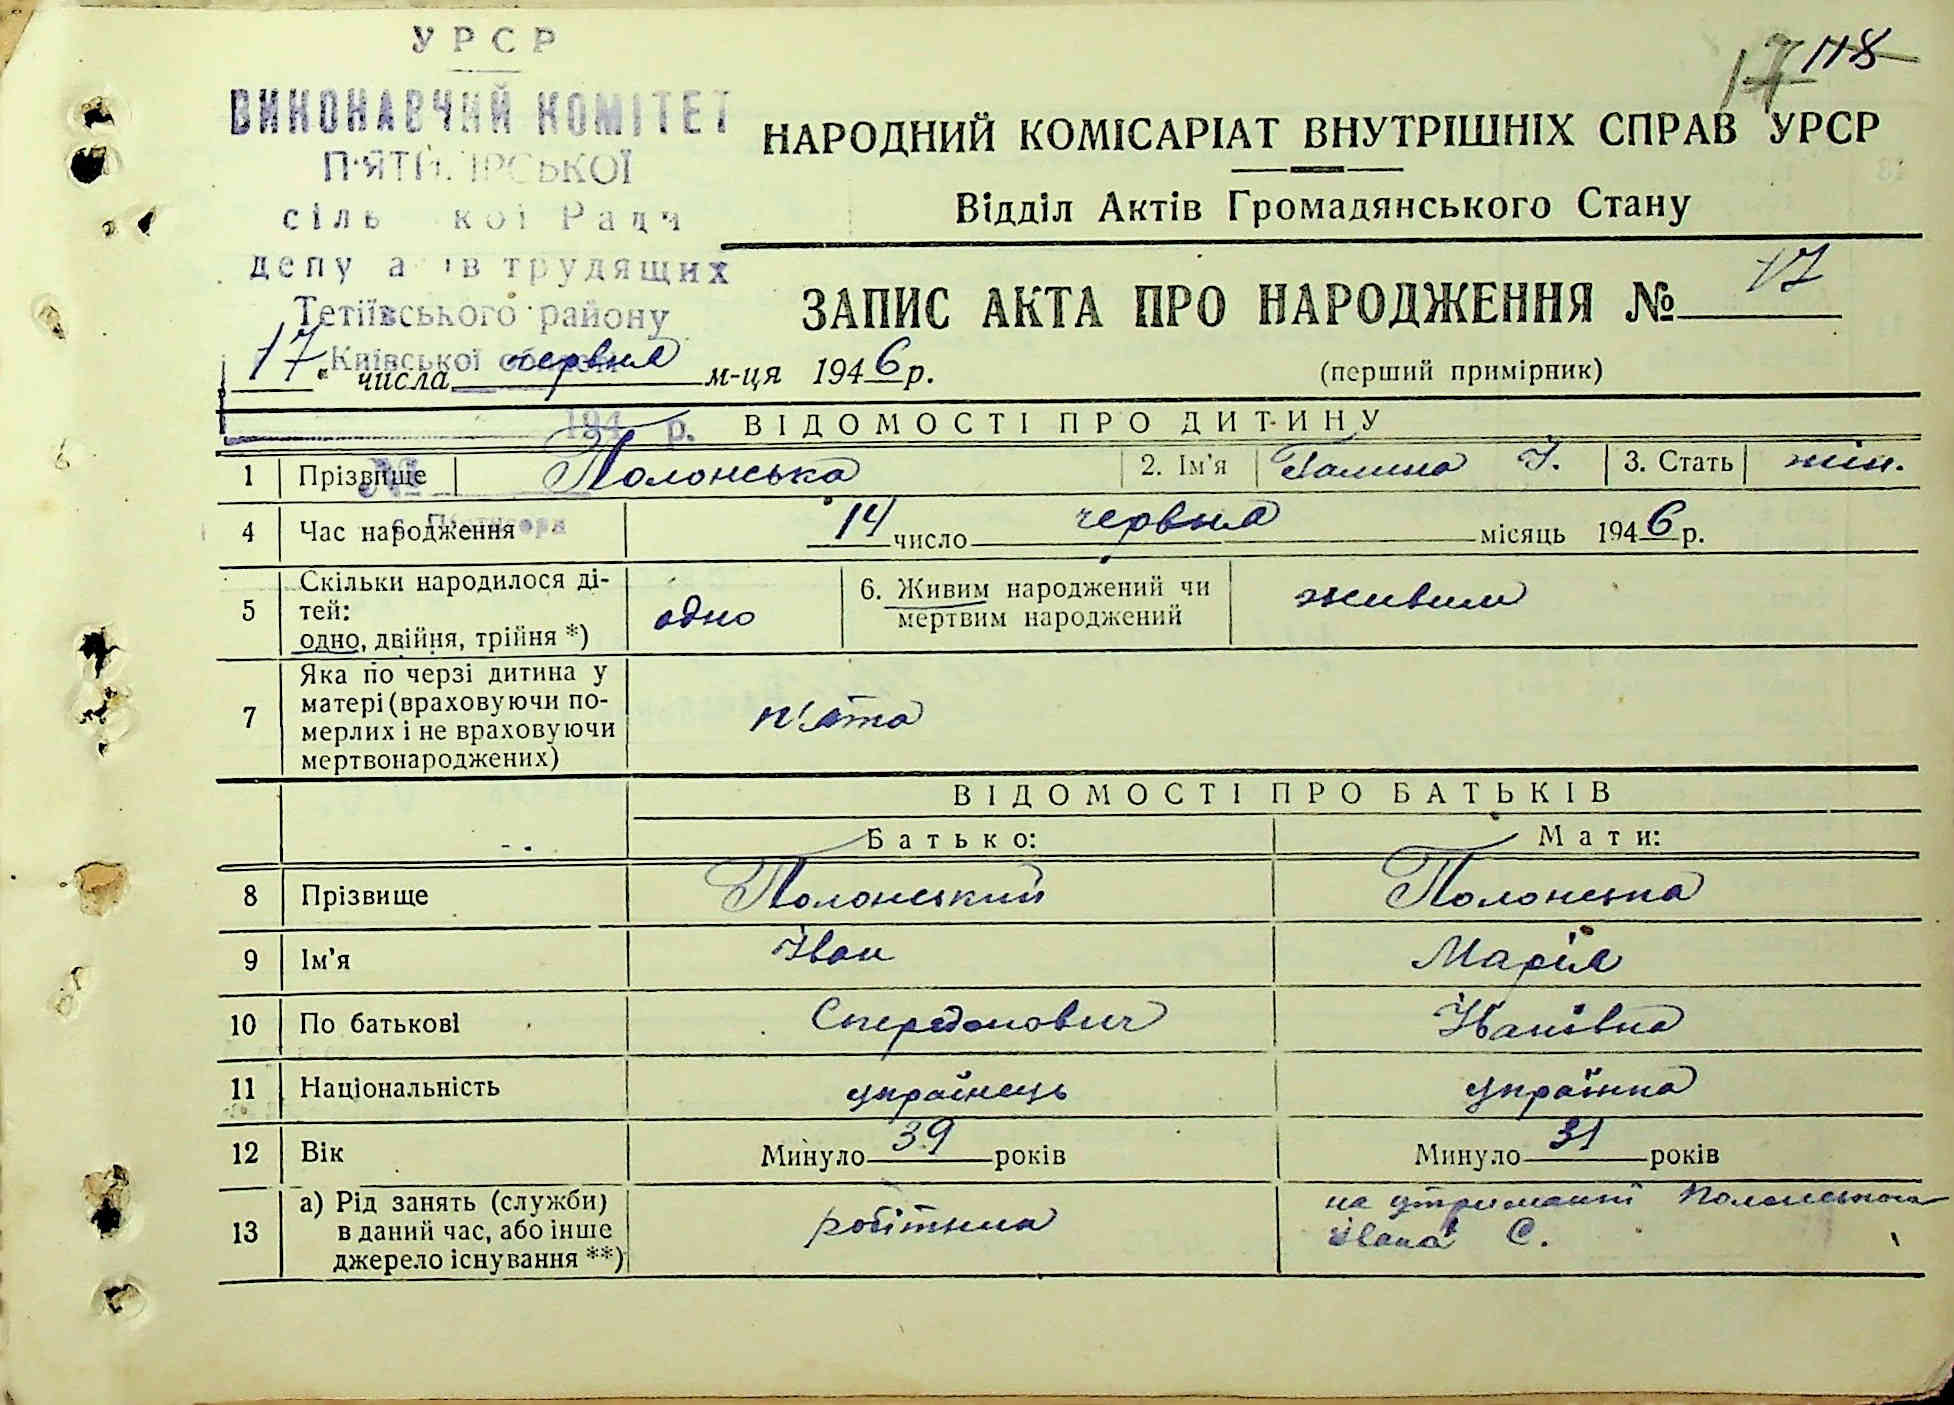 УРСР
ВИКОНАВЧИЙ КОМІТЕТ
П'ЯТИГІРСЬКОЇ
сільської Ради
депутатів трудящих
Тетіївського району
Київської області
194 р.
№
с. П'ятигори
17 118
НАРОДНИЙ КОМІСАРІАТ ВНУТРІШНІХ СПРАВ УРСР
Відділ Актів Громадянського Стану
ЗАПИС АКТА ПРО НАРОДЖЕННЯ № 17
(перший примірник)
17 " числа червня м-ця 1946 р.
ВІДОМОСТІ ПРО ДИТИНУ
1 Прізвище Полонська 2. Ім'я Галина І. 3. Стать жін.
4 Час народження 14 число червня місяць 1946 р.
5 Скільки народилося дітей: одно, двійня, трійня *) одно 6. Живим народжений чи мертвим народжений живим
7 Яка по черзі дитина у матері (враховуючи померлих і не враховуючи мертвонароджених) п'ята
ВІДОМОСТІ ПРО БАТЬКІВ
Батько: Мати:
8 Прізвище Полонський Полонська
9 Ім'я Іван Марія
10 По батькові Спередонович Іванівна
11 Національність українець українка
12 Вік Минуло 39 років Минуло 31 років
13 а) Рід занять (служби) в даний час, або інше джерело існування **) робітник на утриманні Полонського Івана С.